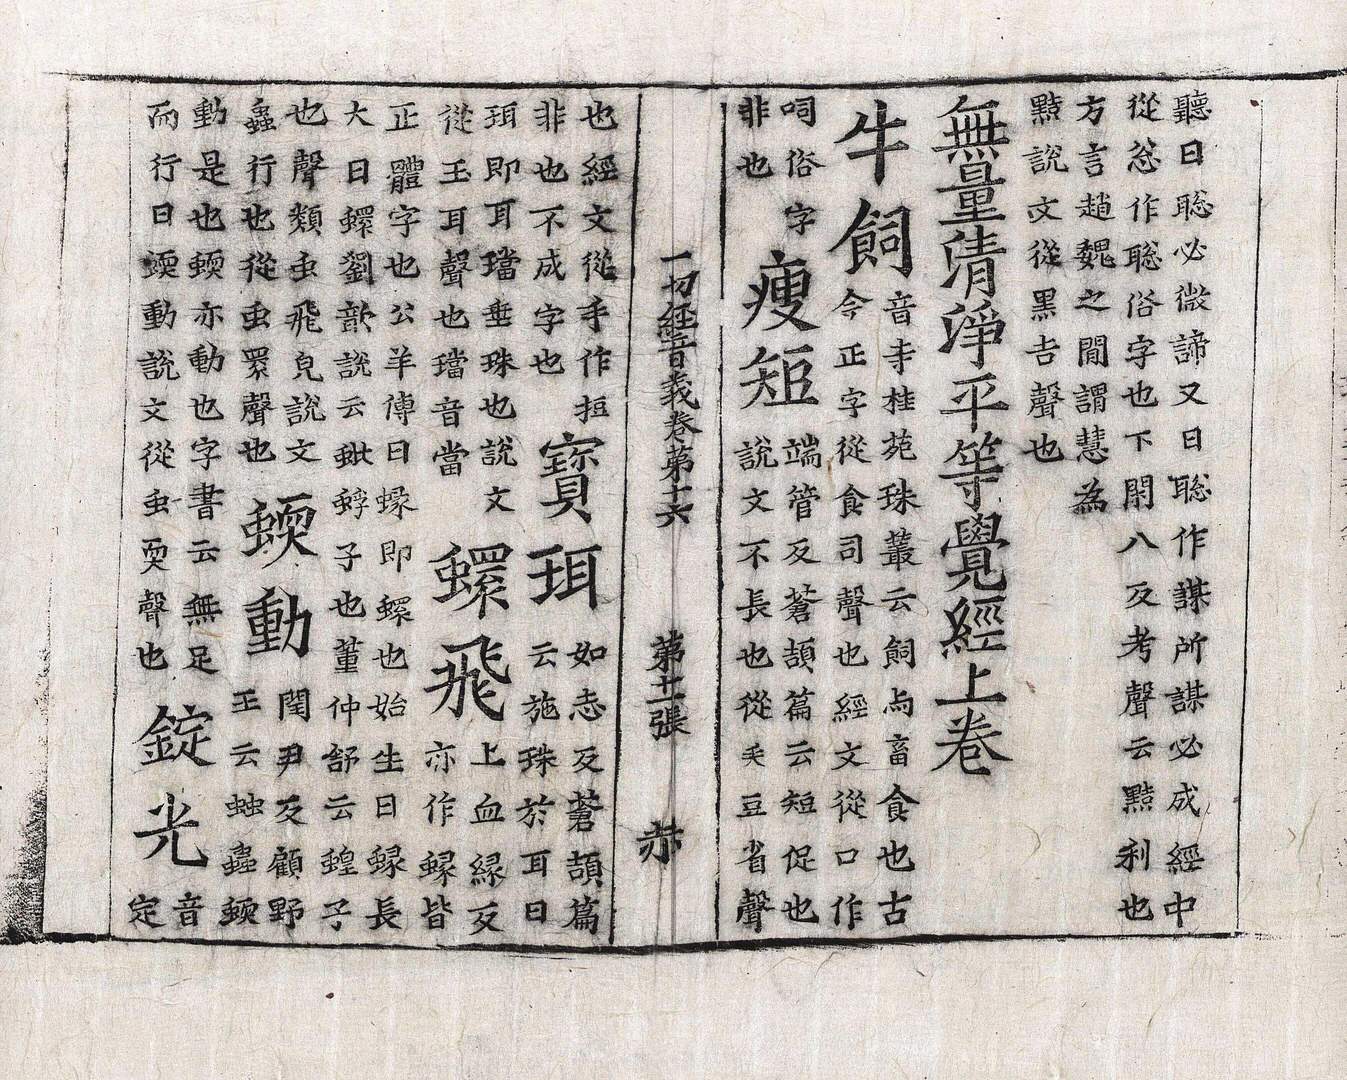 聽曰聡必微諦又曰聡作謀所謀必成經中
從忩作聡俗字也下閑八反考聲云黠利也
方言趙魏之間謂慧為
黠說文從黑吉聲也
無量清淨平等覺經上卷
牛飼
音寺桂苑珠叢云飼亦畜食也古
今正字從食司聲也經文從口作
呞俗字
非也
瘦短
端管反蒼頡篇云短促也
說文不長也從矢豆省聲
一切經音義卷第十六 第十二張
也經文從手作拒
非也不成字也
寶珥
如志反蒼頡篇
云施珠於耳曰
珥即耳璫垂珠也說文
從玉耳聲也璫音當
蠉飛
上血緣反
亦作蝝皆
正體字也公羊傳曰蝝即蠉也始生曰蝝長
大曰蠉劉歆說云蚍蜉子也董仲舒云蝗子
也聲類虫飛皃說文
蟲行也從虫瞏聲也
蝡動
閏尹反顧野
王云蟲蝡
動是也蝡亦動也字書云無足
而行曰蝡動說文從虫耎聲也
錠光
音
定